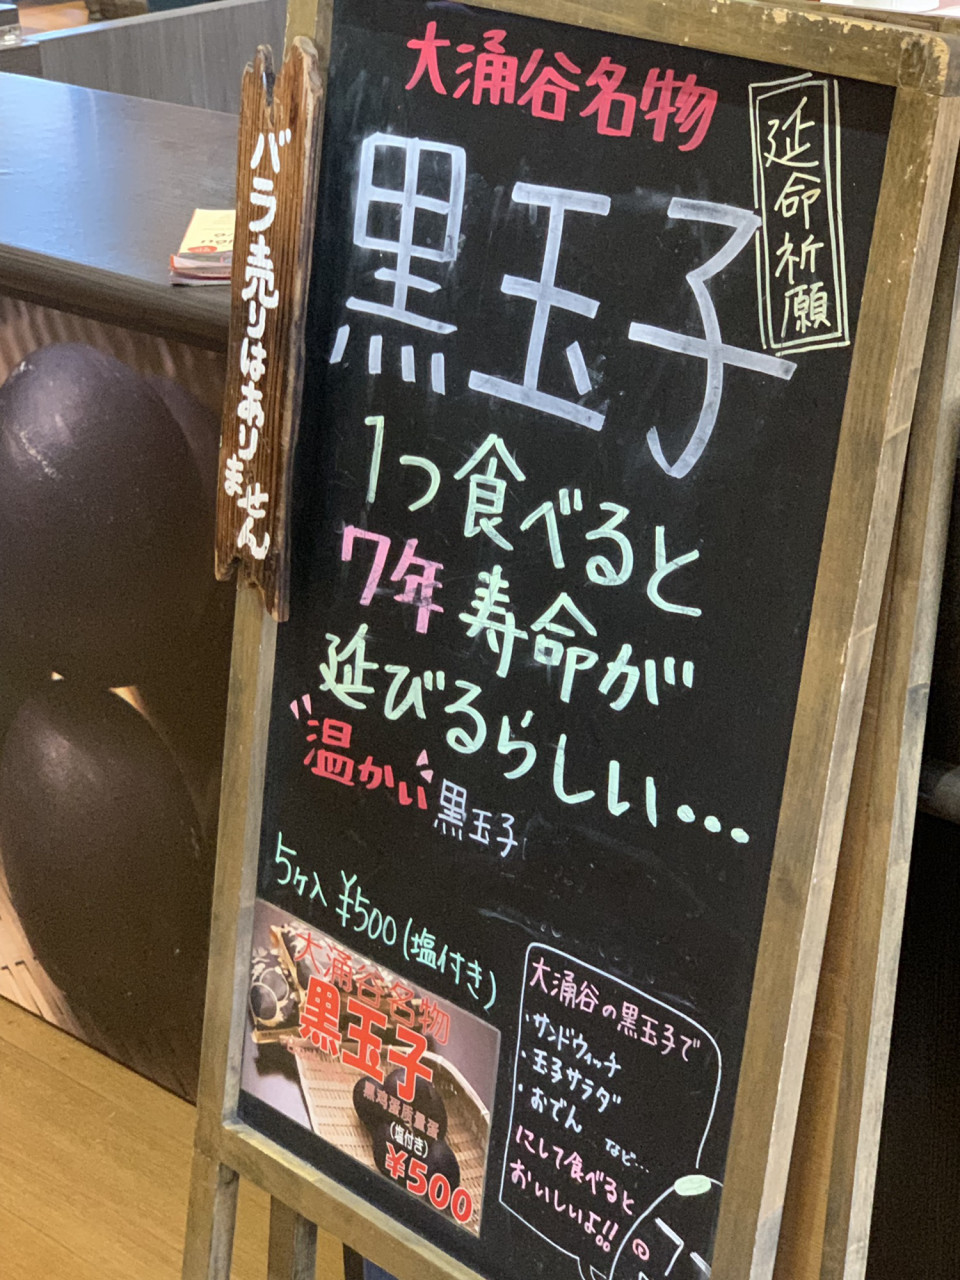 大涌谷名物
延命祈願
黒玉子
バラ売りはありません
1つ食べると
7年寿命が
延びるらしい・・・
温かい黒玉子
5ケ入 ¥500(塩付き)
大涌谷名物
黒玉子
(塩付き)
¥500
大涌谷の黒玉子で
・サンドウィッチ
・玉子サラダ
・おでん
など…
にして食べると
おいしいよ!!